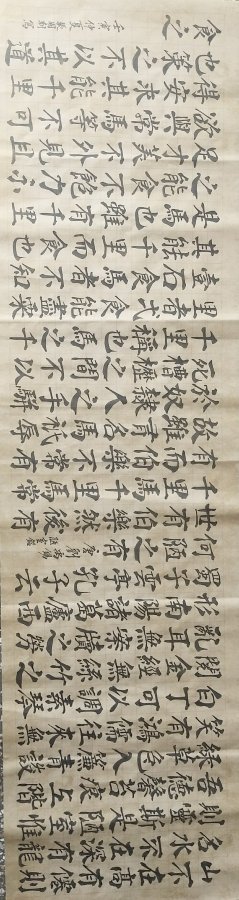 山不在高有僊則
名水不在深有龍
則靈斯是陋室惟
吾德馨苔痕上階
綠草色入簾青談
笑有鴻儒往來無
白丁可以調素琴
閱金經無絲竹之
亂耳無案牘之勞
形南陽諸葛廬西
蜀子雲亭孔子云
何陋之有
世有伯樂然後有
千里馬千里馬常有
而伯樂不常有
故雖有名馬祇辱
於奴隸人之手駢
死於槽櫪之間不以
千里稱也馬之千
里者壹食或盡粟
壹石食馬者不知
其能千里而食也
是馬也雖有千里
之能食不飽力不
足才美不外見且
欲與常馬等不
得安求其能千里
也策之不以其道
食之